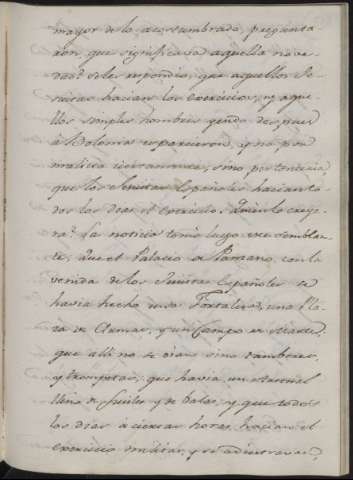 mayor de lo acostumbrado, pregunta
ron que significava aquella nove
dad: se les respondio, que aquellos Je
suitas hacian los exercicios, y aque
llos simples hombres yendo despues
à Bolonia esparcieron, y no por
malicia ciertamente, sino por tonteria,
que los Jesuitas Españoles hacian to
dos los dias el exercicio. Quien lo creye
ra? La noticia tomò luego ese semblan
te, que el Palacio de Bianzano, con la
venida de los Jesuitas Españoles se
havia hecho una Fortaleza, una Pla
za de Armas, y un Campo de Marte:
que alli no se oian sino tambores,
y trompetas, que havia un Arsenal
lleno de fusiles y de balas, y que todos
los dias à ciertas horas hacian el
exercicio militar, y se adiestravan